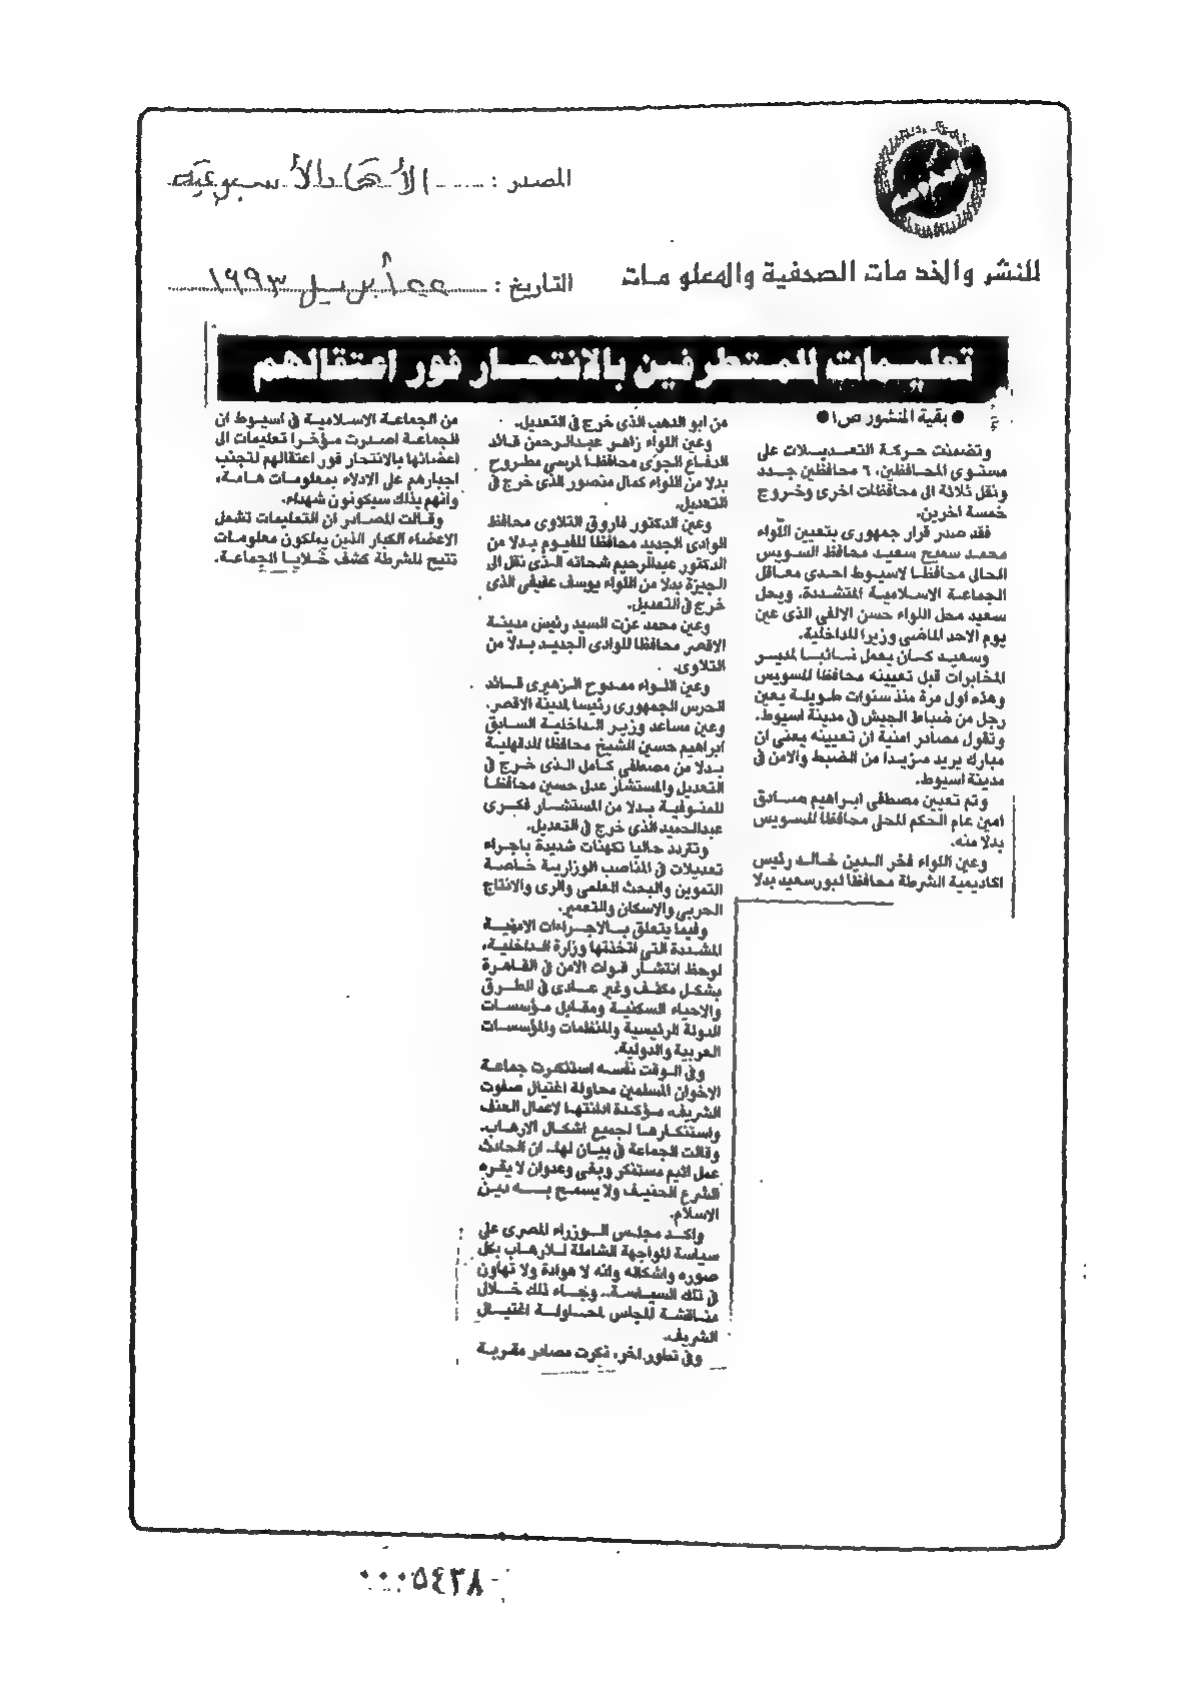 المصدر : الأهالي الأسبوعية
للنشر والخدمات الصحفية والمعلومات
التاريخ : أبريل ١٩٩٣
تعليمات للمتطرفين بالانتحار فور اعتقالهم
● بقية المنشور ص١ ●
وتضمنت حركة التعديلات على
مستوى المحافظين، ٦ محافظين جدد
ونقل ثلاثة الى محافظات اخرى وخروج
خمسة اخرين.
فقد صدر قرار جمهورى بتعيين اللواء
محمد سميح سعيد محافظ السويس
الحالى محافظا لاسيوط احدى معاقل
الجماعة الاسلامية المتشددة، ويحل
سعيد محل اللواء حسن الالفى الذى عين
يوم الاحد الماضى وزيرا للداخلية.
وسعيد كان يعمل نائبا لمدير
المخابرات قبل تعيينه محافظا للسويس
وهذه أول مرة منذ سنوات طويلة يعين
رجل من ضباط الجيش فى مدينة اسيوط.
وتقول مصادر امنية ان تعيينه يعنى ان
مبارك يريد مزيدا من الضبط والامن فى
مدينة اسيوط.
وتم تعيين مصطفى ابراهيم صادق
امين عام الحكم المحلى محافظا للسويس
بدلا منه.
وعين اللواء فخر الدين خالد رئيس
اكاديمية الشرطة محافظا لبورسعيد بدلا
من ابو الدهب الذى خرج فى التعديل.
وعين اللواء زاهر عبدالرحمن قائد
الدفاع الجوى محافظا لمرسى مطروح
بدلا من اللواء كمال منصور الذى خرج فى
التعديل.
وعين الدكتور فاروق التلاوى محافظ
الوادى الجديد محافظا للفيوم بدلا من
الدكتور عبدالرحيم شحاته الذى نقل الى
الجيزة بدلا من اللواء يوسف عفيفى الذى
خرج فى التعديل.
وعين محمد عزت السيد رئيس مدينة
الاقصر محافظا للوادى الجديد بدلا من
التلاوى.
وعين اللواء ممدوح الزهيرى قائد
الحرس الجمهورى رئيسا لمدينة الاقصر.
وعين مساعد وزير الداخلية السابق
ابراهيم حسين الشيخ محافظا للدقهلية
بدلا من مصطفى كامل الذى خرج فى
التعديل والمستشار عدلى حسين محافظا
للمنوفية بدلا من المستشار فكرى
عبدالحميد الذى خرج فى التعديل.
وتتردد حاليا تكهنات شديدة باجراء
تعديلات فى المناصب الوزارية خاصة
التموين والبحث العلمى والرى والانتاج
الحربى والاسكان والتعمير.
وفيما يتعلق بالاجراءات الامنية
المشددة التى اتخذتها وزارة الداخلية،
لوحظ انتشار قوات الامن فى القاهرة
بشكل مكثف وغير عادى فى الطرق
والاحياء السكنية ومقابل مؤسسات
الدولة الرئيسية والمنظمات والمؤسسات
العربية والدولية.
وفى الوقت نفسه استنكرت جماعة
الاخوان المسلمين محاولة اغتيال صفوت
الشريف مؤكدة ادانتها لاعمال العنف
واستنكارها لجميع اشكال الارهاب.
وقالت الجماعة فى بيان لها، ان الحادث
عمل اثيم مستنكر وبغى وعدوان لا يقره
الشرع الحنيف ولا يسمح به دين
الاسلام.
واكد مجلس الوزراء المصرى على
سياسة المواجهة الشاملة للارهاب بكل
صوره واشكاله وانه لا هوادة ولا تهاون
فى تلك السياسة.. وجاء ذلك خلال
مناقشة المجلس لمحاولة اغتيال
الشريف.
وفى تطور اخر، ذكرت مصادر مقربة
من الجماعة الاسلامية فى اسيوط ان
الجماعة اصدرت مؤخرا تعليمات الى
اعضائها بالانتحار فور اعتقالهم لتجنب
اجبارهم على الادلاء بمعلومات هامة،
وانهم بذلك سيكونون شهداء.
وقالت المصادر ان التعليمات تشمل
الاعضاء الكبار الذين يملكون معلومات
تتيح للشرطة كشف خلايا الجماعة.
٠٠٠٥٤٣٨